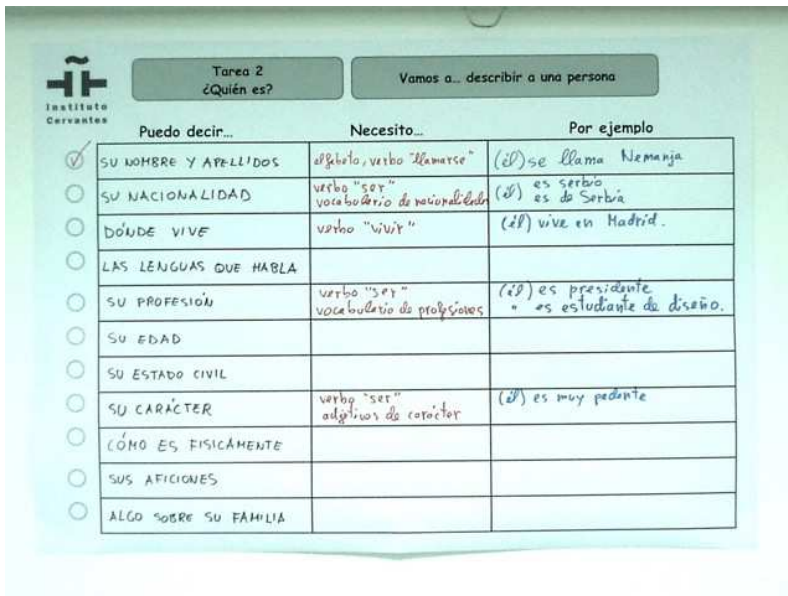 Instituto
Cervantes
Tarea 2
¿Quién es?
Vamos a... describir a una persona
Puedo decir...
Necesito...
Por ejemplo
SU NOMBRE Y APELLIDOS
alfabeto, verbo "llamarse"
(él) se llama Nemanja
SU NACIONALIDAD
verbo "ser"
vocabulario de nacionalidades
(él) es serbio
es de Serbia
DÓNDE VIVE
verbo "vivir"
(él) vive en Madrid.
LAS LENGUAS QUE HABLA
SU PROFESIÓN
verbo "ser"
vocabulario de profesiones
(él) es presidente
" es estudiante de diseño.
SU EDAD
SU ESTADO CIVIL
SU CARÁCTER
verbo "ser"
adjetivos de carácter
(él) es muy pedante
CÓMO ES FISICÁMENTE
SUS AFICIONES
ALGO SOBRE SU FAMILIA